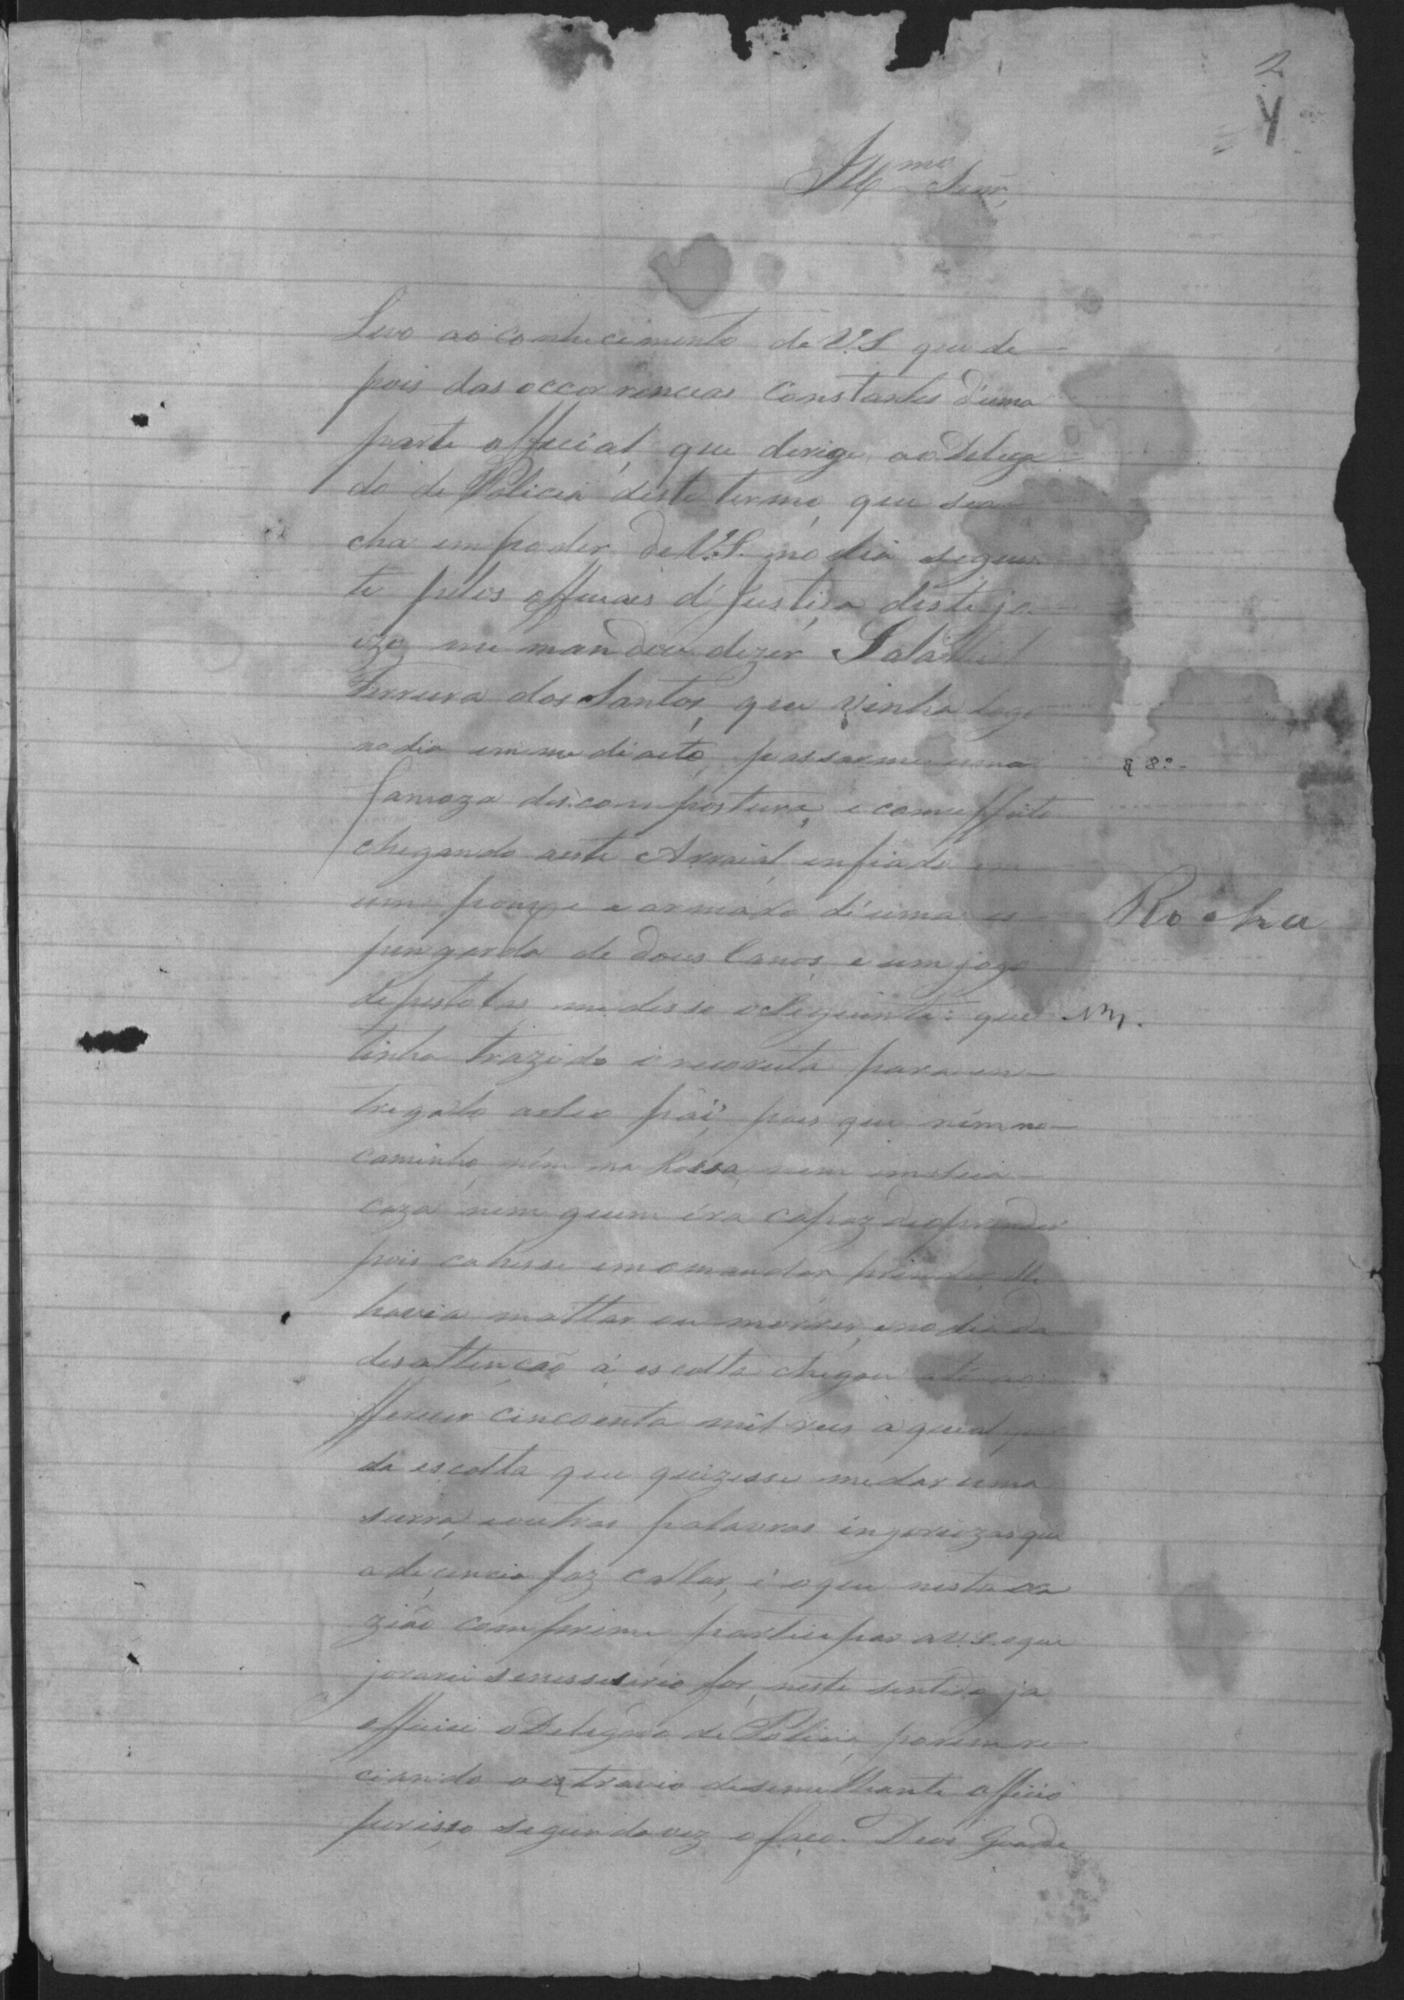 2
4
Illmo Senr.
Levo ao conhecimento de V.S que de
pois das occorrencias constantes d'uma
parte official, que derige ao Delega
do de Policia deste termo, que sea
cha em poder de V.S. no dia seguin
te pelos officiaes d'Justiça deste ju
izo me mandou dizer
Ferreira dos Santos, que vinha logo
no dia immediacto, passarme uma
§ 8º
famoza descompostura, e com effeito
chegando neste Arraial, enfiado em
um ponxe e armado d'uma es
Rocha
pengarda de dous canos, e um jogo
depistolas me disse o seguinte: que
tinha trazido o recruta para en
tregalo aseo pai, pois que nem no
caminho, nem na Rossa, nem em sua
caza nem guem era capaz de oprender
pois cahisse em omandar
havia mattar ou morrer, e no dia da
desattenção á escolta chegou até ao
fferecer cincoenta mil reis a qual
da escolta que quizesse me dar uma
surra, e outras palavras injuriozas que
a decencia faz callar, é o que nesta oca
zião comprime participar a V.S. e que
jurarei senessesario for, neste sentido ja
officiei o Delegado de Policia, porem re
ciando o extravio de semelhante officio
porisso segunda vez o faço. Deos Guarde